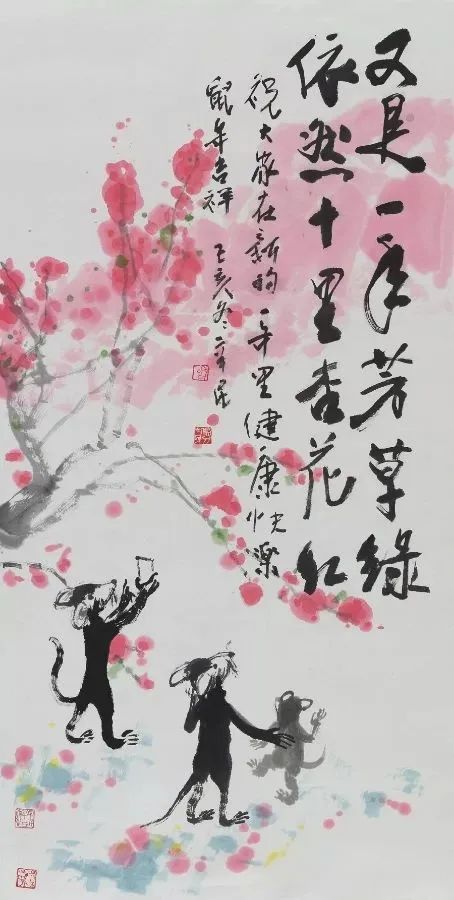 又是一年芳草綠
依然十里杏花红
祝大家在新的一年里健康快樂
鼠年吉祥 己亥冬